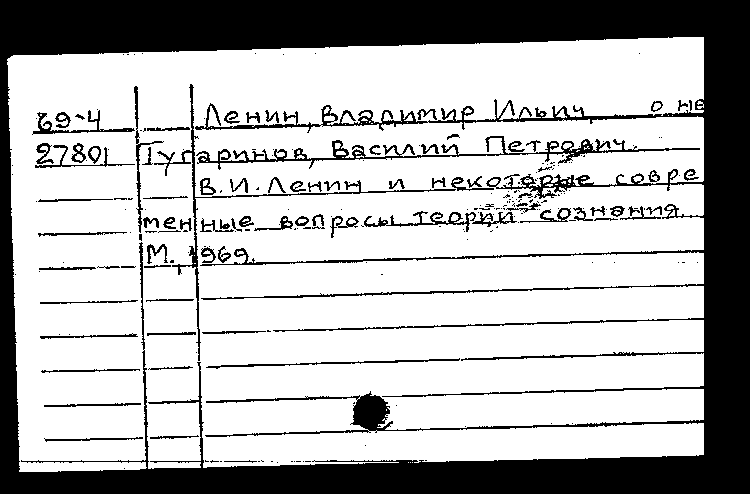 69-4 Ленин, Владимир Ильич, о нё
27801 Тугаринов, Василий Петрович.
В.И.Ленин и некоторые совре
менные вопросы теории сознания.
М., 1969.